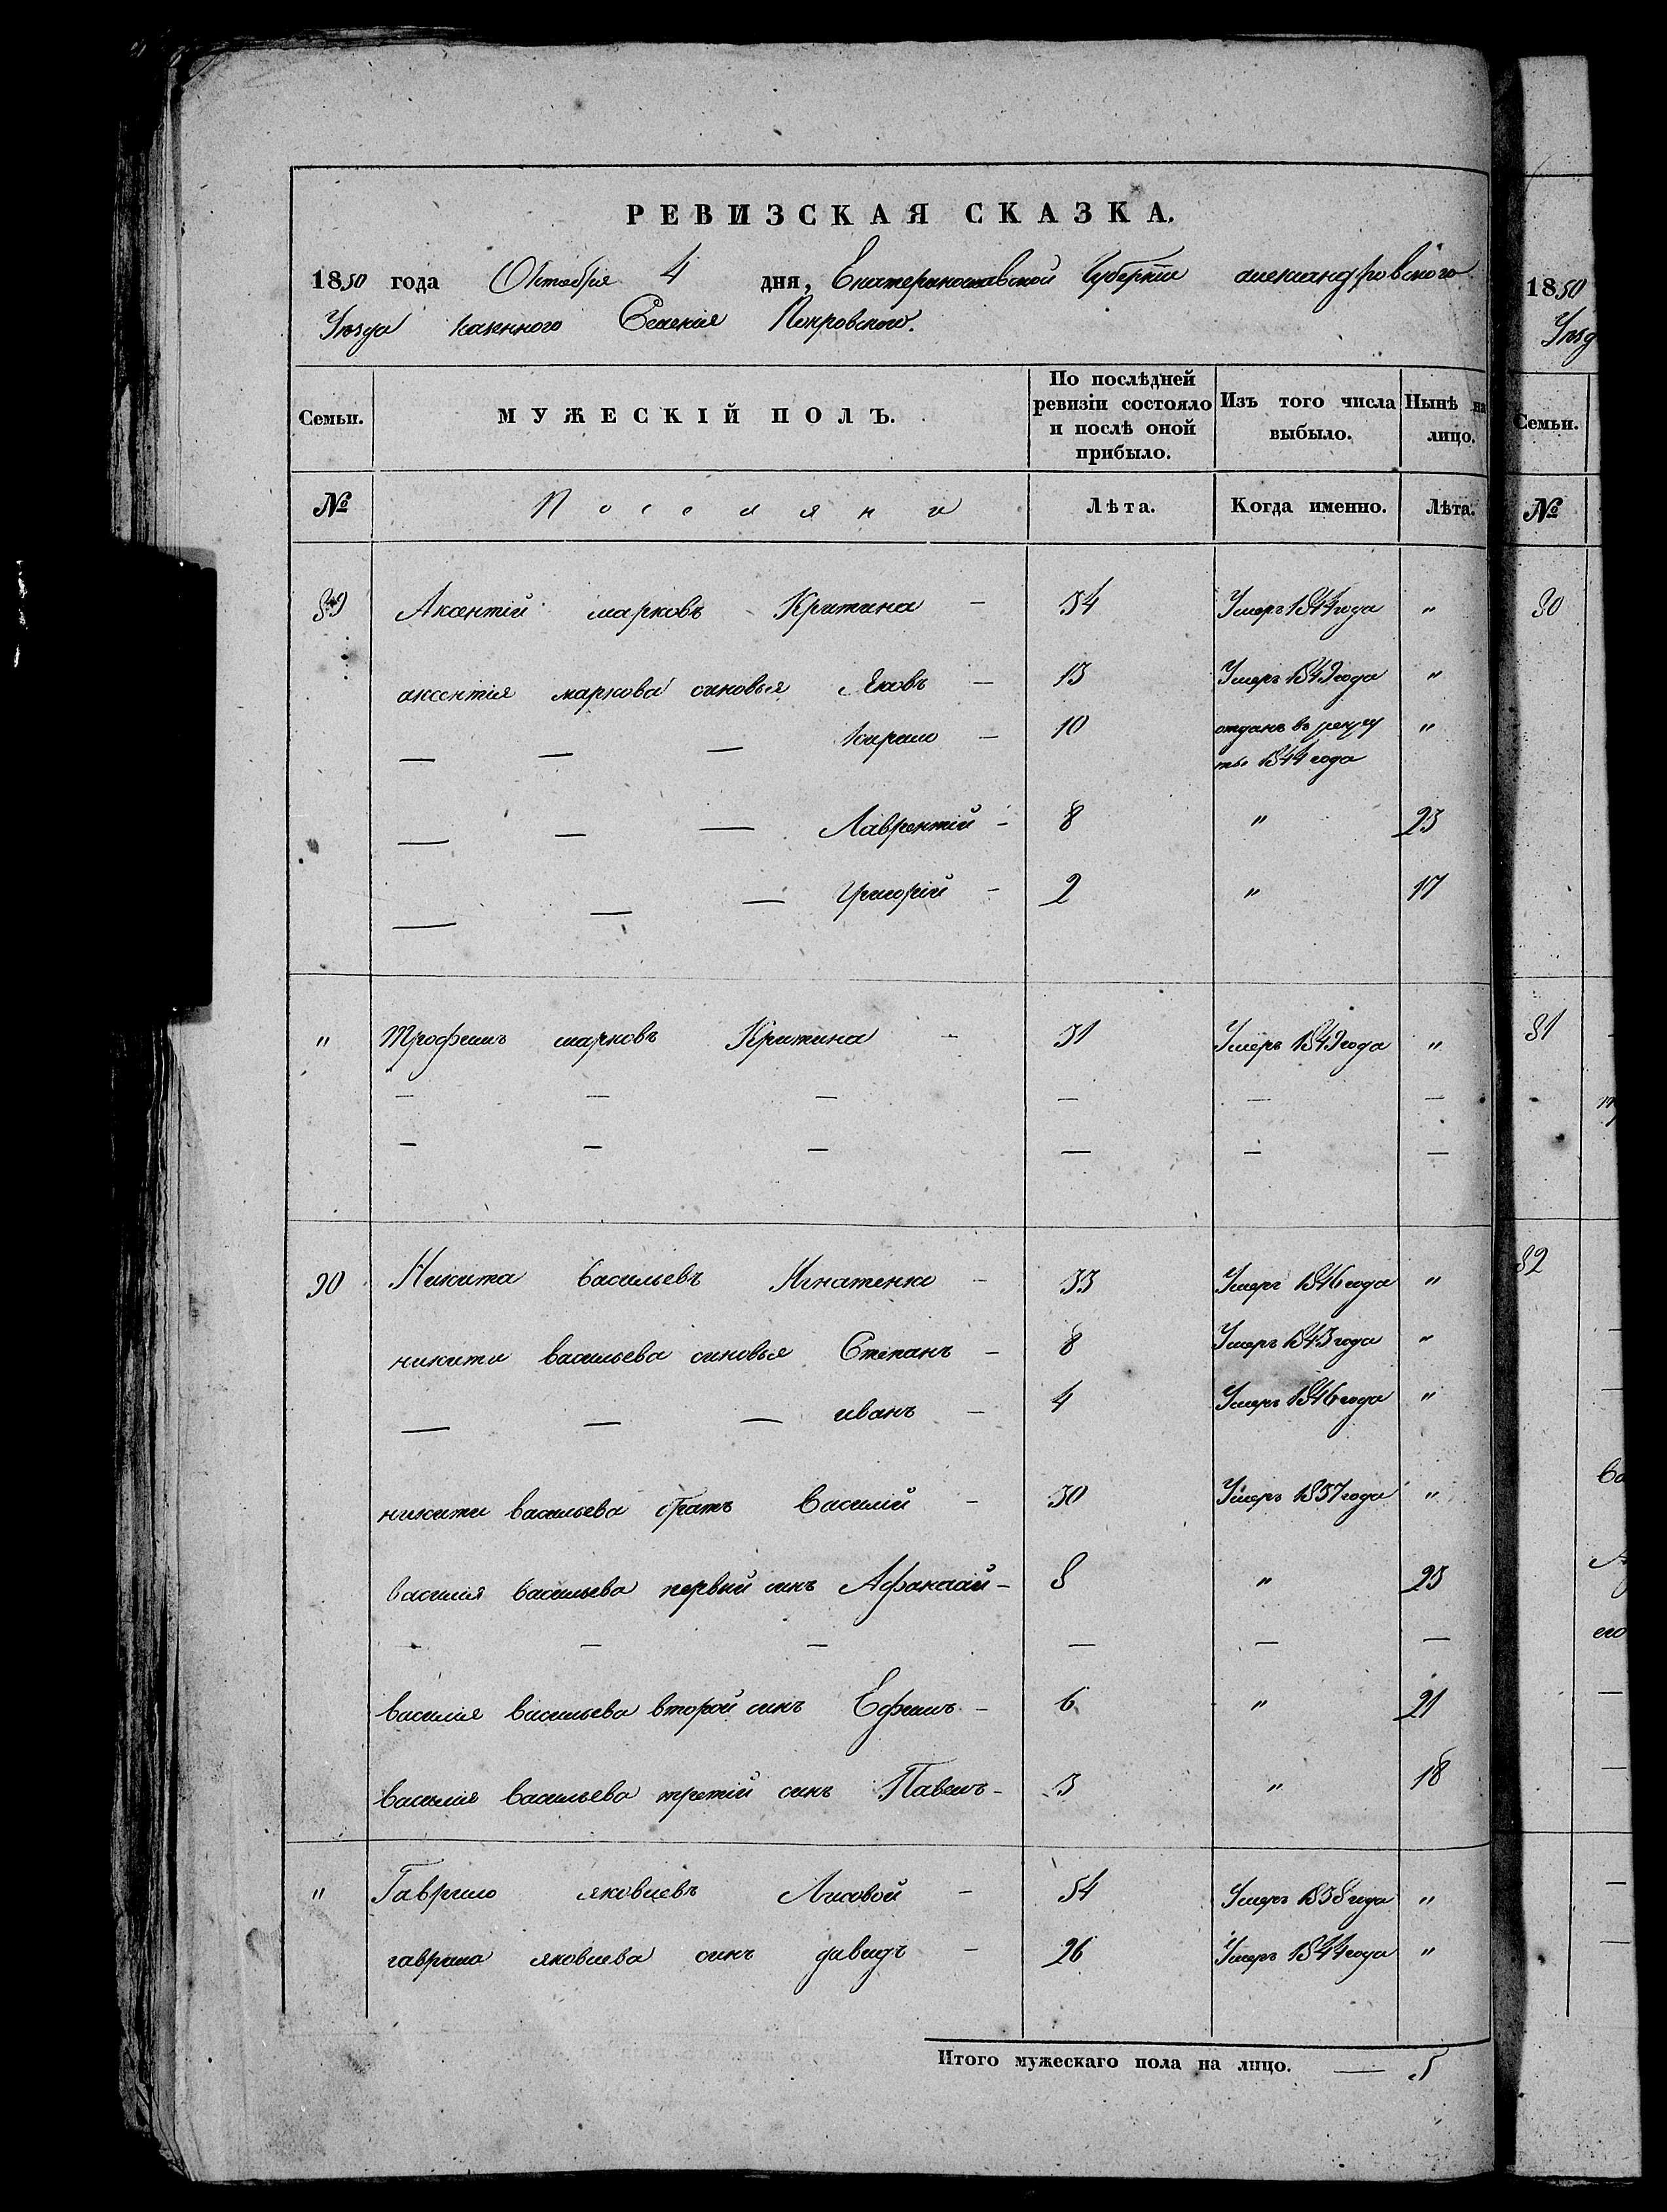 РЕВИЗСКАЯ СКАЗКА.
1850 года Октября 4 дня, Екатеринославской Губерніи александровского
Уезда казенного Селенія Покровского.
Семьи. МУЖЕСКІЙ ПОЛЪ. По послѣдней ревизіи состояло и послѣ оной прибыло. Изъ того числа выбыло. Нынѣ на лицо.
№ Поселяни Лѣта. Когда именно. Лѣта.
89 Аксентій марковъ Критина - 34 Умеръ 1844 года "
аксентія маркова синовья Яковъ - 13 Умеръ 1849 года "
— — — Кирило - 10 отданъ въ рекру "
ты 1844 года
— — — Лаврентій - 8 " 23
— — — Григорій - 2 " 17
" Трофимъ марковъ Критина - 31 Умеръ 1849 года "
— — — — — —
— — — — — —
90 Никита васильевъ Игнатенко - 33 Умеръ 1846 года "
никити васильева синовья Степанъ - 8 Умеръ 1843 года "
— — — иванъ - 4 Умеръ 1846 года "
никити васильева братъ Василій - 30 Умеръ 1837 года "
василія васильева первий синъ Афанасий - 8 " 23
— — — — — —
василія васильева второй синъ Ефимъ - 6 " 21
василія васильева третій синъ Павелъ - 3 " 18
" Гаврило яковлевъ Лисовой - 54 Умеръ 1838 года "
гаврила яковлева синъ давидъ - 26 Умеръ 1844 года "
Итого мужескаго пола на лицо. — 5
1850
Уезд
Семьи.
№
80
81
82
ва
его